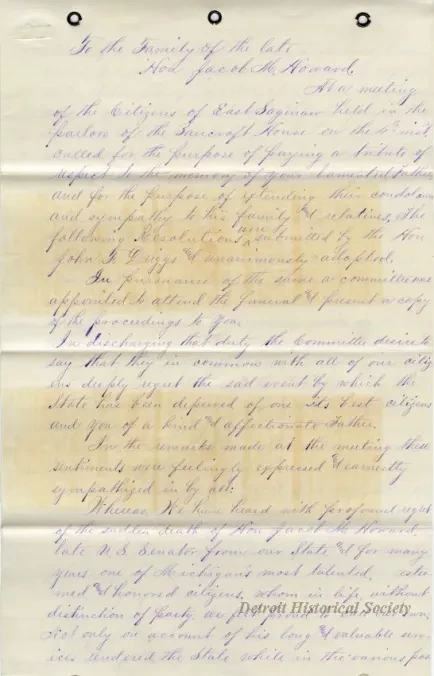 To the Family of the late
Hon Jacob M. Howard.
At a meeting
of the Citizens of East Saginaw held in the
parlors of the Bancroft House on the 4th inst,
called for the purpose of paying a tribute of
respect to the memory of your lamented Father
and for the purpose of extending their condolence
and sympathy to his family & relatives. The
following Resolutions were submitted by the Hon
John F Driggs & unanimously adopted.
In pursuance of the same a committee was
appointed to attend the funeral & present a copy
of the proceedings to you.
In discharging that duty the Committee desire to
say that they in common with all of our citiz
ens deeply regret the sad event by which the
State has been deprived of one its best citizens
and you of a kind & affectionate Father.
In the remarks made at the meeting these
sentiments were feelingly expressed & earnestly
sympathized in by all:
Whereas We have heard with profound regret
of the sudden death of Hon Jacob M Howard,
late U.S. Senator from our State & for many
years one of Michigan's most talented, estee
med & honored citizens, whom in life, without
distinction of party we felt proud to own,
Not only on account of his long & valuable serv
ices rendered the State while in the various pos
Detroit Historical Society